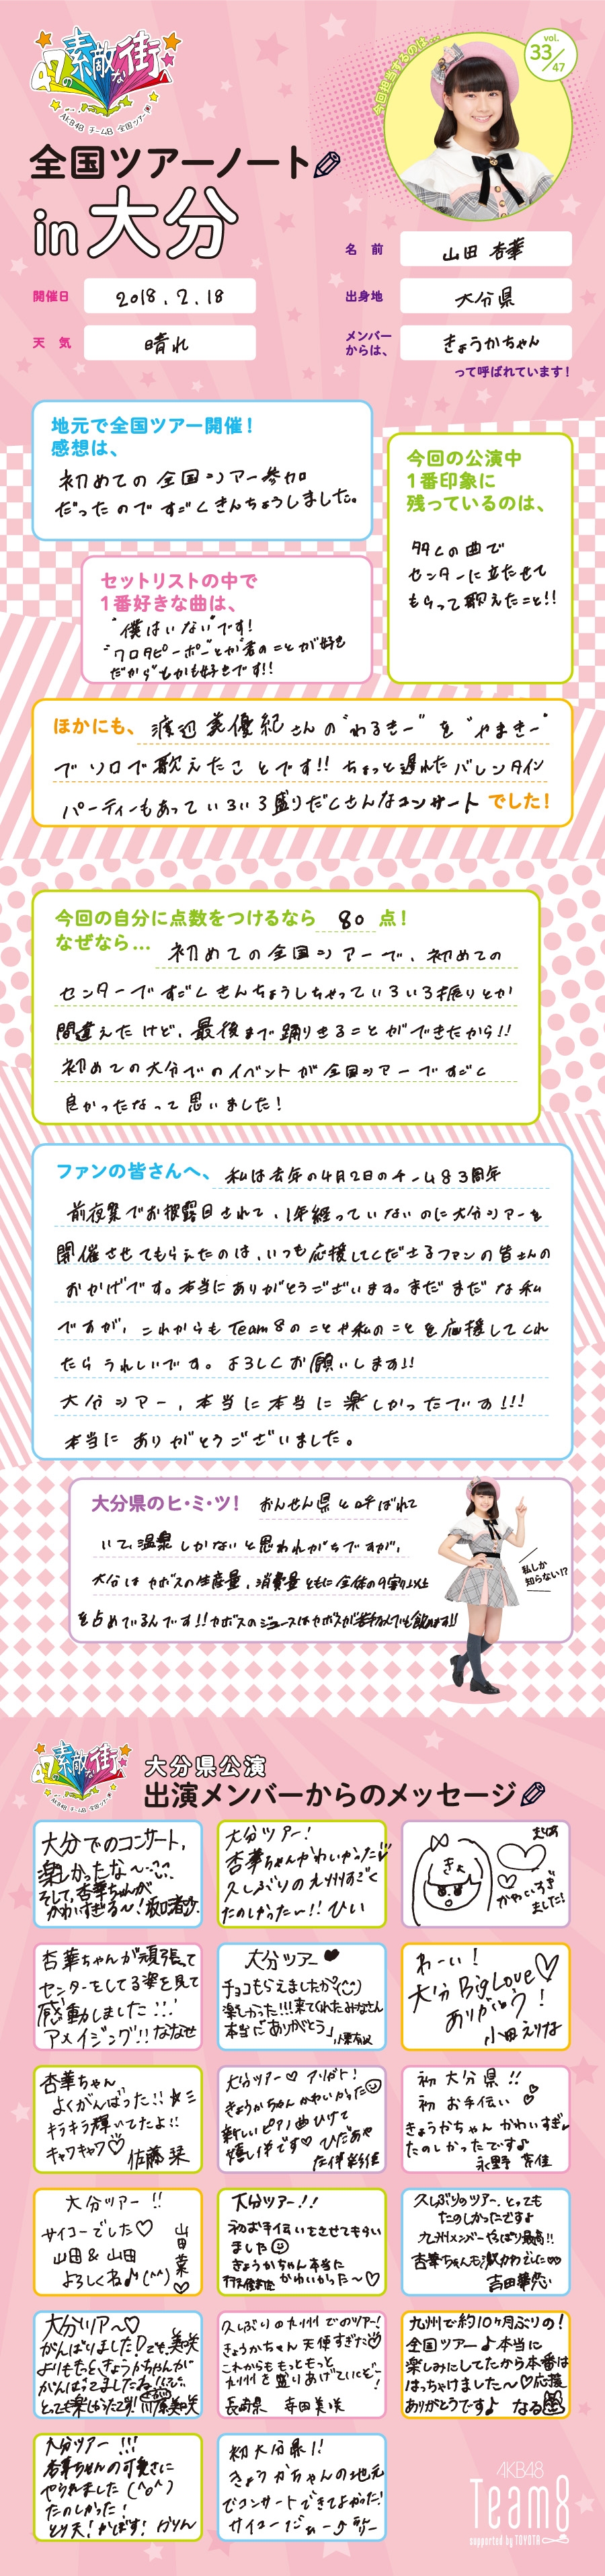 47の素敵な街
AKB48 チーム8 全国ツアー
今回担当するのは…
vol.
33/47
全国ツアーノート
in 大分
名 前
山田 杏華
開催日
2018.2.18
出身地
大分県
天 気
晴れ
メンバー
からは、
きょうかちゃん
って呼ばれています！
地元で全国ツアー開催！
感想は、
初めての全国ツアー参加
だったのですごくきんちょうしました。
今回の公演中
1番印象に
残っているのは、
多くの曲で
センターに立たせて
もらって歌えたこと!!
セットリストの中で
1番好きな曲は、
"僕はいない"です!
だからとかも好きです!!
ほかにも、渡辺美優紀さんの"わるきー"を"やまきー"
でソロで歌えたことです!! ちょっと遅れたバレンタイン
パーティーもあっていろいろ盛りだくさんなコンサートでした！
今回の自分に点数をつけるなら 80 点！
なぜなら… 初めての全国ツアーで、初めての
センターですごくきんちょうしちゃっていろいろ振りとか
間違えたけど、最後まで踊りきることができたから!!
初めての大分でのイベントが全国ツアーですごく
良かったなって思いました!
ファンの皆さんへ、私は去年の4月2日のチーム8 3周年
前夜祭でお披露目されて、1年経っていないのに大分ツアーを
開催させてもらえたのは、いつも応援してくださるファンの皆さんの
おかげです。本当にありがとうございます。まだまだな私
ですが、これからもTeam8のことや私のことを応援してくれ
たらうれしいです。よろしくお願いします!!
大分ツアー、本当に本当に楽しかったです!!!
本当にありがとうございました。
大分県のヒ・ミ・ツ！ おんせん県と呼ばれて
いて、温泉しかないと思われがちですが、
大分はカボスの生産量、消費量ともに全体の9割以上
を占めているんです!!カボスのジュースはカボスが苦手な人でも飲めます!!
私しか
知らない!?
47の素敵な街
AKB48 チーム8 全国ツアー
大分県公演
出演メンバーからのメッセージ
大分でのコンサート,
楽しかったな〜
そして,杏華ちゃんが
かわいすぎる〜!
大分ツアー!
杏華ちゃんかわいかった
久しぶりのえりりすごく
たのしかった〜!! ひい
きょ
かわいすぎ
ました!
杏華ちゃんが頑張って
センターをしてる姿を見て
感動しました!!!
アメイジング!! ななせ
大分ツアー♥
チョコもらえましたか(^^)
楽しかった!!!来てくれたみなさん
本当にありがとう
わーい!
大分 Big Love♡
ありがとう!
小田えりな
杏華ちゃん
よくがんばった!!
キラキラ輝いてたよ!!
キャワキャワ♡ 佐藤栞
大分ツアー♡ アリガト!
きょうかちゃんかわいかった
楽しいピアノ曲ひけて
嬉し伴です♡ ひだあや
左伴彩佳
初 大分県!!
初 お手伝い
きょうかちゃん かわいすぎ
たのしかったです♪
永野芹佳
大分ツアー!!
サイコーでした♡
山田&山田
よろしくね♪(^^)
山田菜々
大分ツアー!!
初お手伝いをさせてもらい
ました
きょうかちゃん本当に
行天優莉奈 かわいかった〜♡
久しぶりのツアー、とっても
たのしかったですよ
九州メンバーやっぱり最高!!
杏華ちゃんも激かわでした♡♡
吉田華恋
大分ツアー♡
がんばりました!でも、美咲
よりもたくさんきょうかちゃんが
がんばってましたね
とっても楽しかったです! 川原美咲
久しぶりの九州でのツアー!
きょうかちゃん天使すぎた
これからももっともっと
九州を盛りあげていくぞー!
長崎県 寺田美咲
九州で約10ヶ月ぶりの!
全国ツアー♪本当に
楽しみにしてたから本番は
はっちゃけました〜♡応援
ありがとうですよ なる
大分ツアー!!!
杏華ちゃんの可愛さに
やられました(^o^)
たのしかった!
とり天!かぼす! かりん
初大分県!!
きょうかちゃんの地元
でコンサートできてよかった!
サイコーだぁー
AKB48
Team8
supported by TOYOTA